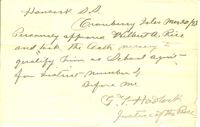 Hancock S.S.
Cranberry Isles Mar 20/83
Personaly appeared Wilbert A. Rice
and took the Oath necessary to
qualify him as School agent
for District Number 4
Before Me
Justice of the Peace